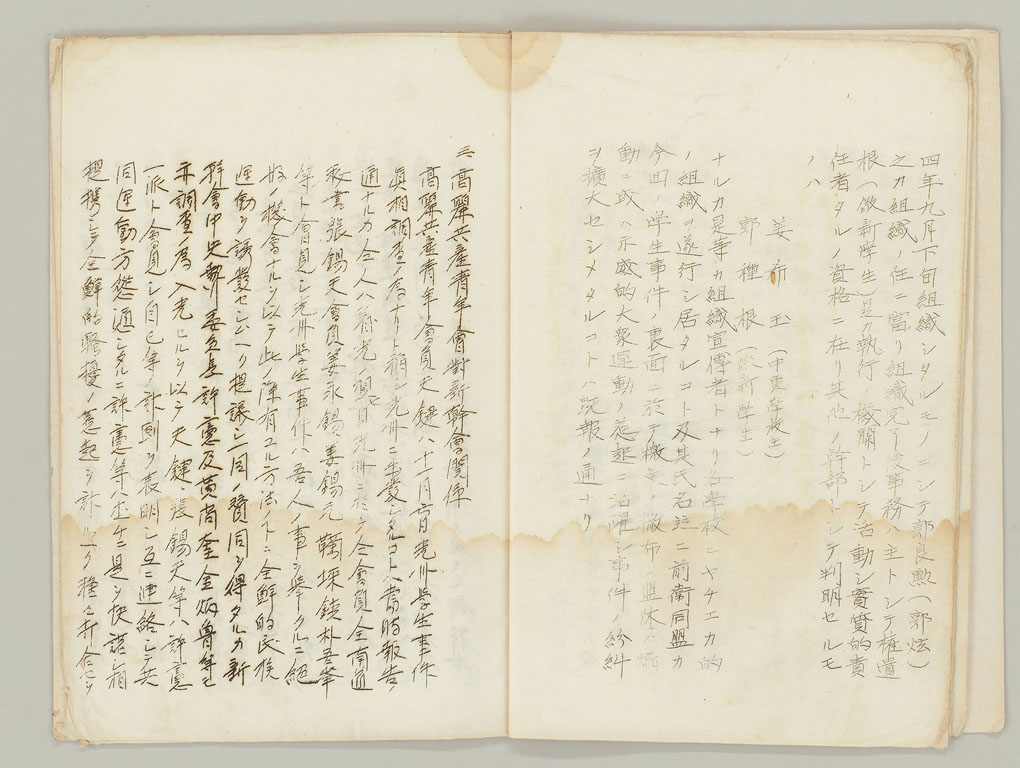 四年九月下旬組織シタルモノニシテ郭良勲(郭炫)
之カ組織ノ任ニ當リ組織完了後事務ノ主トシテ權遺
根(徽新學生)是カ執行機關トシテ活動シ實質的責
任者タルノ資格ニ在リ其他ノ幹部トシテ判明セルモ
ノハ
姜 布 玉(中東學校生)
郭 種 根(徽新學生)
ナルカ是等カ組織宣傳者トナリ各學校ニヤチエカ的
ノ組織ヲ遂行シ居タルコト及其氏名並ニ前衛同盟カ
今回ノ學生事件ノ裏面ニ於テ檄文ノ撒布、盟休ハ
動ニ或ハ示威的大衆運動ノ慫慂ニ活躍シ事件ノ紛糾
ヲ擴大セシメタルコトハ既報ノ通ナリ
三 高麗共産青年會對新幹會關係
高麗共産青年會員夫鍵ハ十一月六日光州學生事件
眞相調査ノ爲ナリト稱シ光州ニ來レタルコトハ當時報告ノ
通ナルカ仝人ハ着光ノ翌日光州ニ於テ仝會員全南道
秘書張錫天會員姜永錫、姜錫元、鞠採鉄、朴吾鳳
等ト會見シ光州學生事件ハ吾人ノ事ヲ擧クルニ絶
好ノ機會ナルヲ以テ此ノ際有ユル方法下ニ全鮮的民族
運動ヲ誘發セシムヘク提議シ一同ノ贊同ヲ得タルカ新
幹會中央執委員長許憲及黄尚奎、金炳魯等モ
亦調査ノ爲入光セルヲ以テ夫鍵、張錫天等ハ許憲
一派ト會見シ自己等ノ計劃ヲ表明シ互ニ連絡シテ共
同運動方慫慂シタルニ許憲等ハ 是ヲ快諾シ相
提携シテ全鮮的騒擾ノ惹起ヲ計ルヘク種々打合セヲ